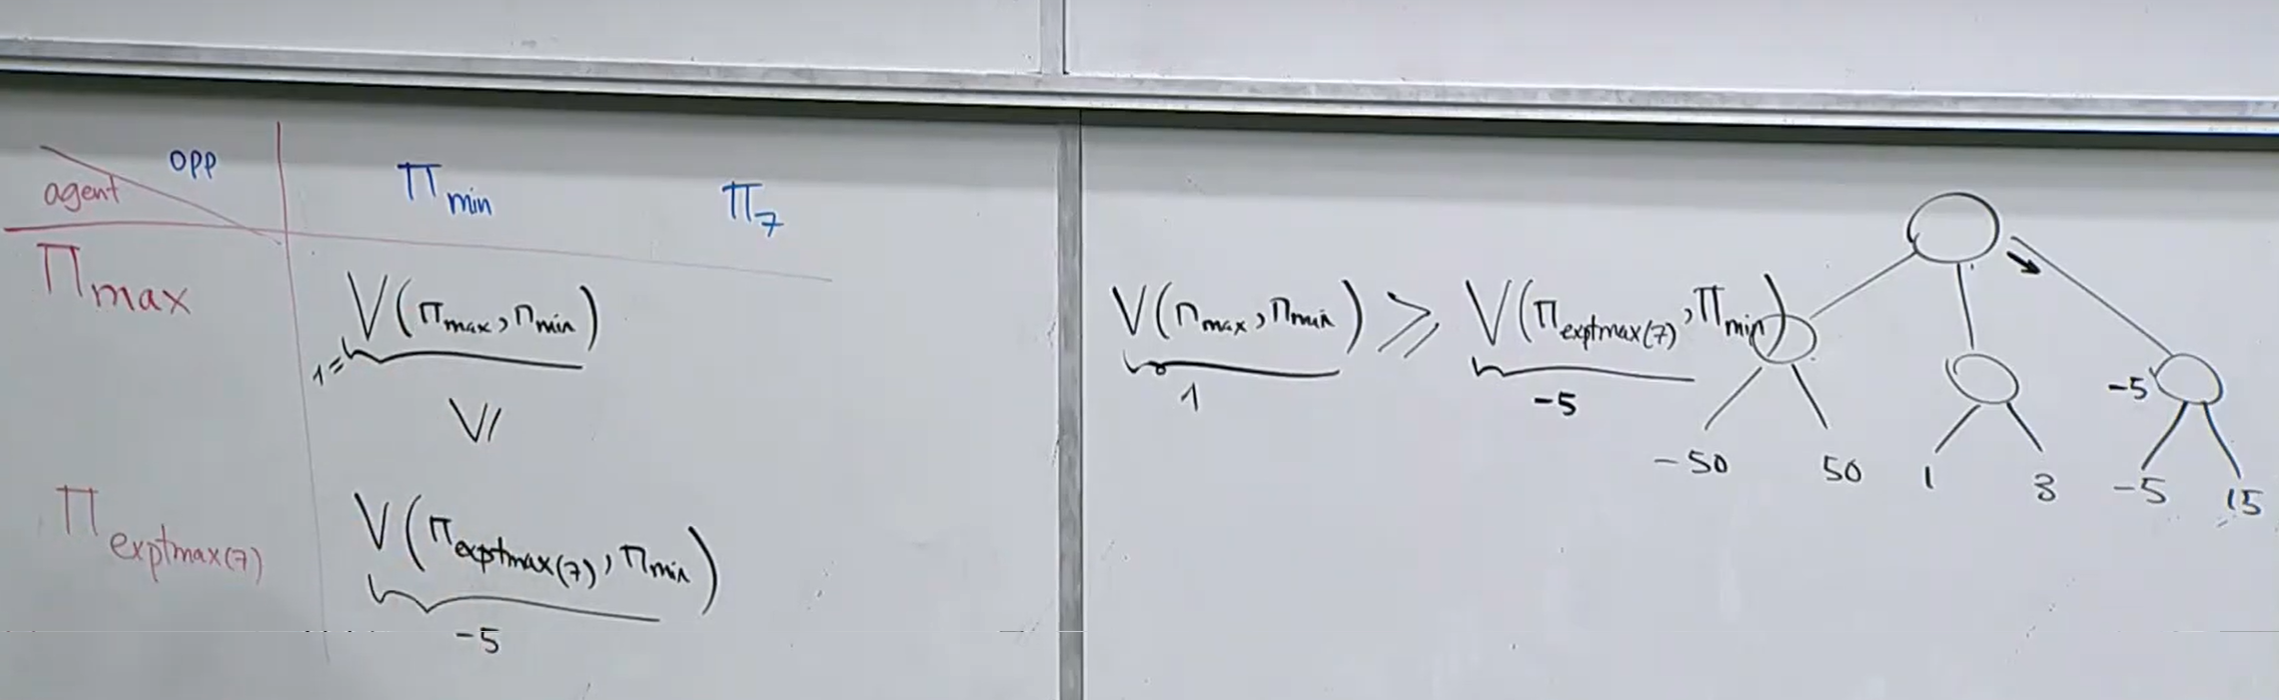 opp
agent
π_min π_7
π_max
V(π_max, π_min)
1=
V/
π_exptmax(7)
V(π_exptmax(7), π_min)
-5
V(π_max, π_min) ⩾ V(π_exptmax(7), π_min)
1 -5
-5
-50 50 1 3 -5 15